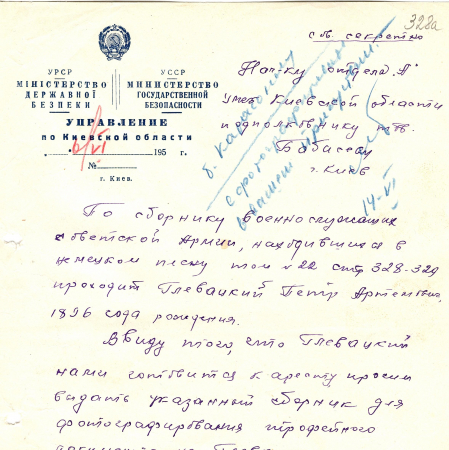 328а
сов. секретно
УРСР
МІНІСТЕРСТВО
ДЕРЖАВНОЇ
БЕЗПЕКИ
УССР
МИНИСТЕРСТВО
ГОСУДАРСТВЕННОЙ
БЕЗОПАСНОСТИ
УПРАВЛЕНИЕ
по Киевской области
195 г.
№
г. Киев.
Нач-ку отдела "А"
Киевской области
подполковнику тов.
г. Киев
14-VI
По сборнику военнослужащих
советской Армии, находившихся в
немецком плену том № 22 стр 328-329
проходит Плевацкий Петр Артемович,
1896 года рождения.
Ввиду того, что Плевацкий
нами готовится к аресту просим
выдать указанный сборник для
фотографирования трофейного